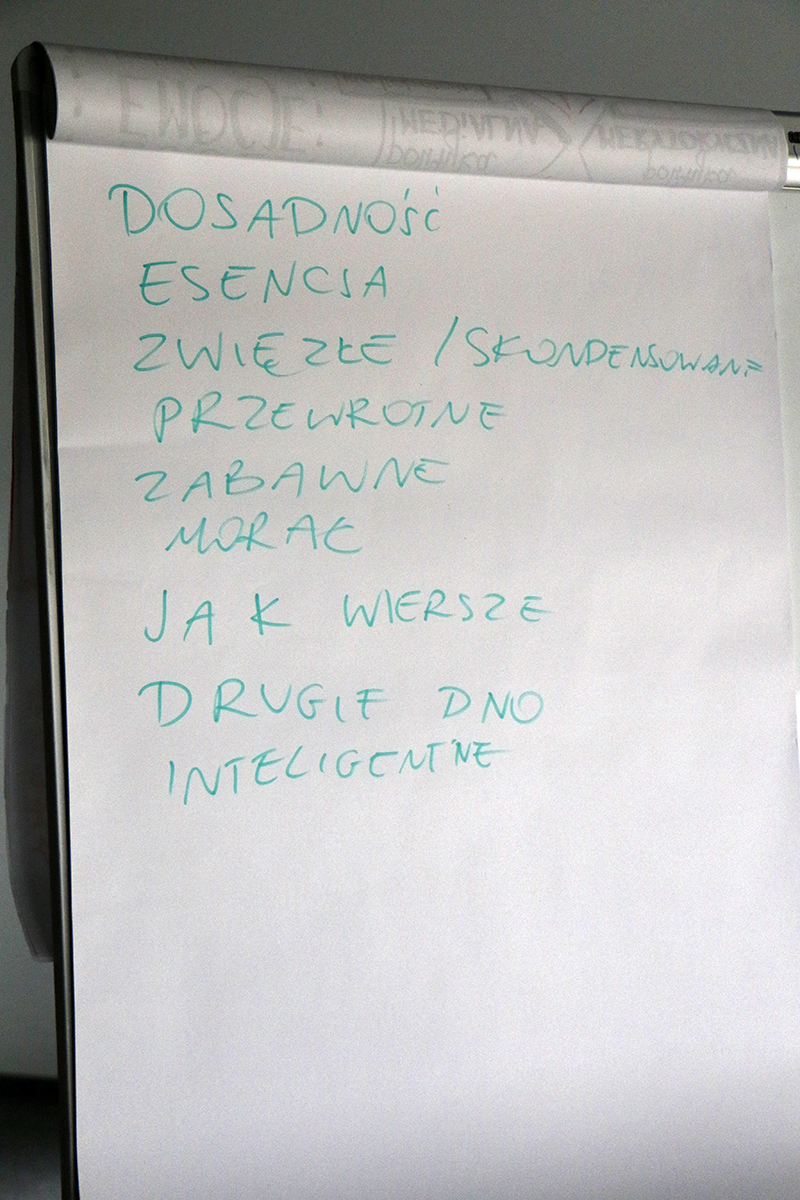 EMOCJE:
DOSADNOŚĆ
ESENCJA
ZWIĘZŁE / SKONDENSOWANE
PRZEWROTNE
ZABAWNE
MORAŁ
JAK WIERSZE
DRUGIE DNO
INTELIGENTNE